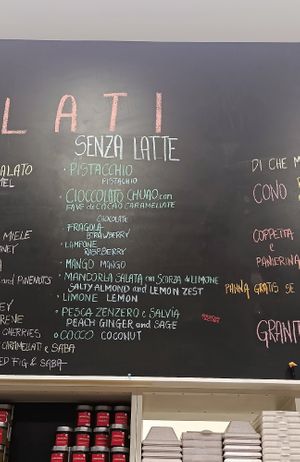 LATI
SENZA LATTE
• PISTACCHIO
PISTACHIO
• CIOCCOLATO CHUAO con
FAVE di CACAO CARAMELLATE
CHOCOLATE
FRAGOLA
STRAWBERRY
• LAMPONE
RASPBERRY
• MANGO MANGO
• MANDORLA SALATA con SCORZA di LIMONE
SALTY ALMOND and LEMON ZEST
• LIMONE LEMON
• PESCA ZENZERO e SALVIA
PEACH GINGER and SAGE
• COCCO COCONUT
SALATO
MEL
MIELE
NEY
and PINENUTS
EY
RENE
CHERRIES
CARAMELLATI e SABA
ED FIG & SABA
DI CHE M
CONO
COPPETTA
e
PANIERINA
PANNA GRATIS SE
GRANIT